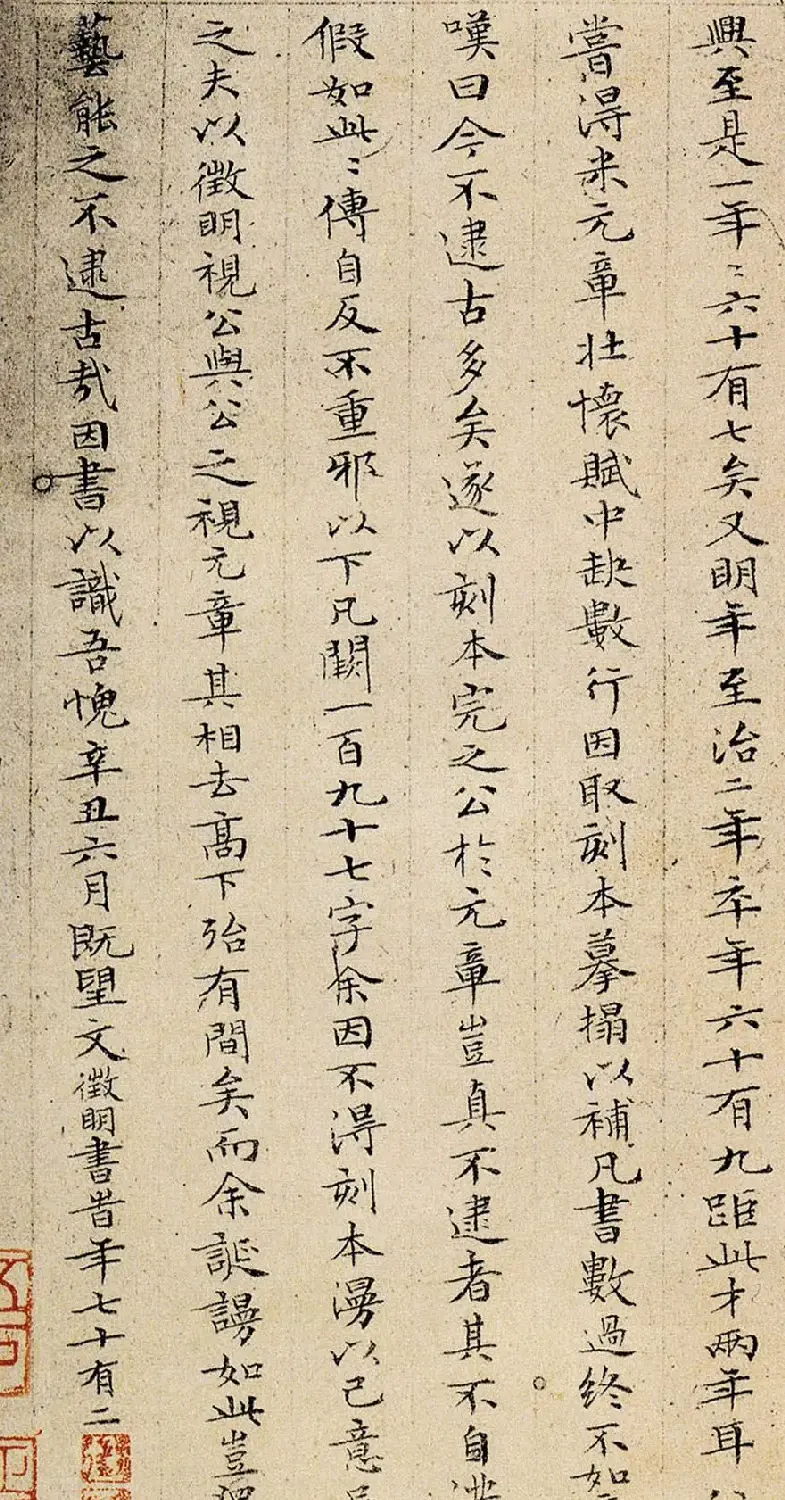 興至是一年〻六十有七矣又明年至治二年卒年六十有九距此才兩年耳
嘗得米元章壯懷賦中缺數行因取刻本摹搨以補凡書數過終不如
嘆曰今不逮古多矣遂以刻本完之公於元章豈真不逮者其不自
假如此〻傳自反不重邪以下凡闕一百九十七字余因不得刻本漫以己意
之夫以徵明視公與公之視元章其相去高下殆有間矣而余誕謾如此豈
藝能之不逮古哉因書以識吾愧辛丑六月既望文徵明書昔年七十有二